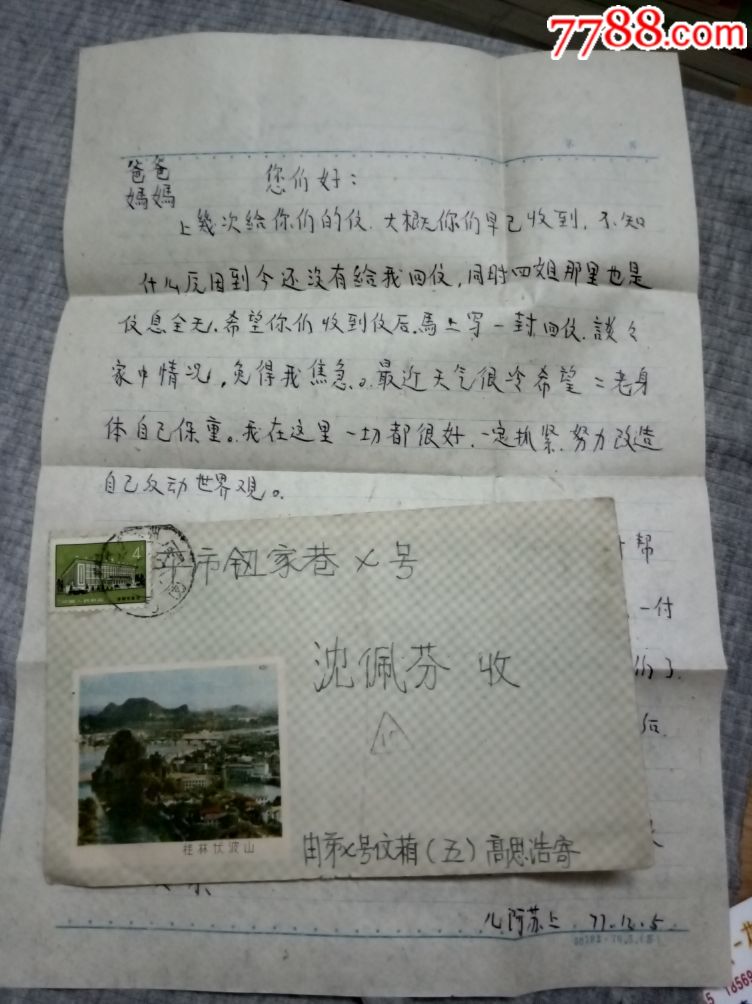 7788.com
爸爸
媽媽
您们好:
上幾次给你们的伩.大概你们早已收到,不知
什么原因到今还没有给我回伩,同时四姐那里也是
伩息全无.希望你们收到伩后.馬上写一封回伩.談々
家中情况,免得我焦急。最近天气很冷希望二老身
体自己保重。我在这里一切都很好,一定抓紧.努力改造
自己反动世界观。
帮
一付
们了.
后.
4
市钮家巷 号
沈佩芬 收
桂林伏波山
由 号伩箱(五)高思浩寄
儿阿苏上 77.12.5